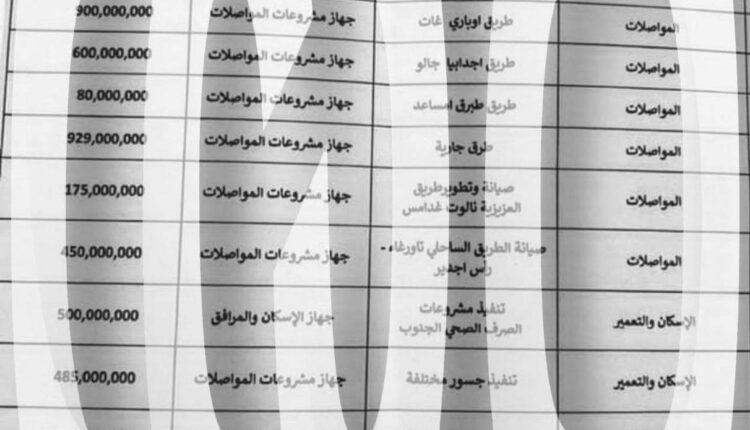 المواصلات طريق اوباري غات جهاز مشروعات المواصلات 900,000,000
المواصلات طريق اجدابيا جالو جهاز مشروعات المواصلات 600,000,000
المواصلات طريق طبرق امساعد جهاز مشروعات المواصلات 80,000,000
المواصلات طرق جارية جهاز مشروعات المواصلات 929,000,000
المواصلات صيانة وتطوير طريق العزيزية نالوت غدامس جهاز مشروعات المواصلات 175,000,000
المواصلات صيانة الطريق الساحلي تاورغاء - رأس اجدير جهاز مشروعات المواصلات 450,000,000
الإسكان والتعمير تنفيذ مشروعات الصرف الصحي الجنوب جهاز الإسكان والمرافق 500,000,000
الإسكان والتعمير تنفيذ جسور مختلفة جهاز مشروعات المواصلات 485,000,000